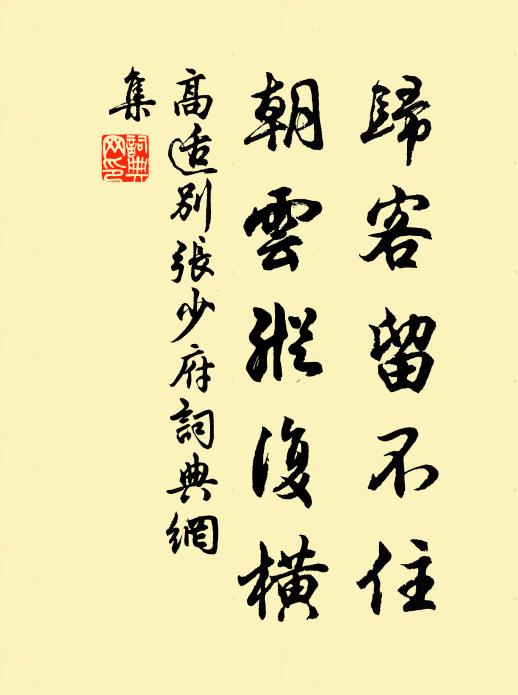 歸客留不住
朝雲縱復橫
高适別張少府詞典網
集
詞典
网印